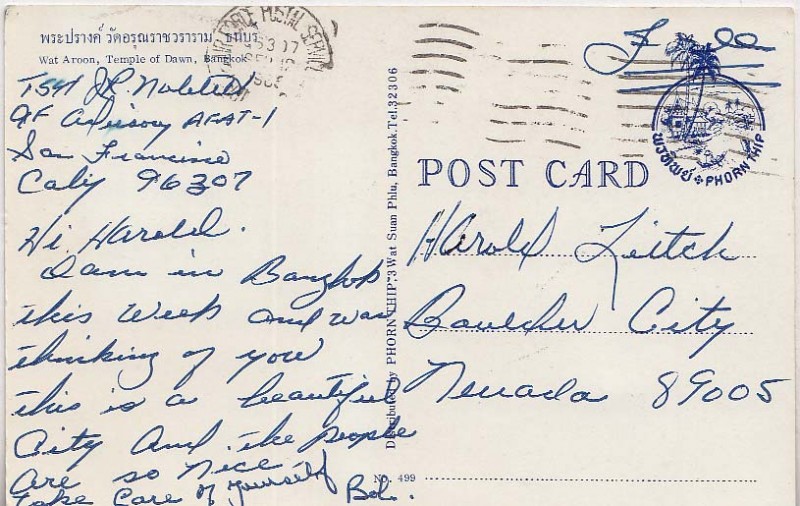 พระปรางค์ วัดอรุณราชวราราม ธนบุรี
Wat Aroon, Temple of Dawn, Bangkok
AIR FORCE POSTAL SERVICE
TSgt
AF Advisory AFAT-1
San Francisco
Calif 96307
Hi Harold.
I am in Bangkok
this week and was
thinking of you
this is a beautiful
City And the people
are so nice
Take Care of yourself
Bob.
Distributed by PHORN THIP, 3 Wat Suan Phlu, Bangkok. Tel. 32306
No. 499
Free
พรทิพย์ PHORN THIP
POST CARD
Harold Leitch
Boulder City
Nevada 89005